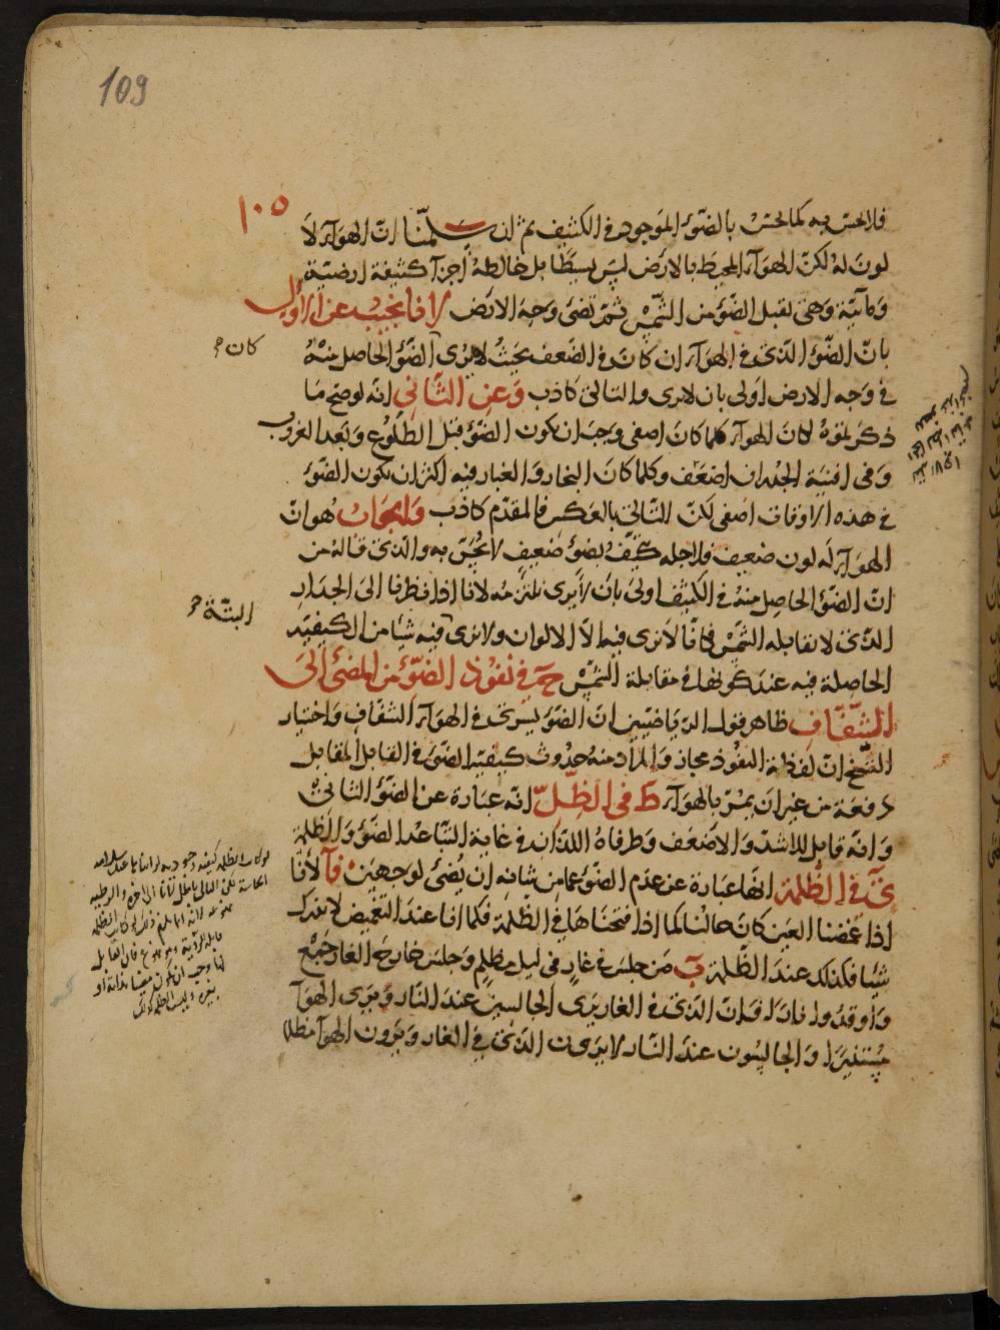 109
١٠٥
فلا يحس به كما يحس بالضوء الموجود في الكثيف ثم لئن سلمنا ان الهواء لا
لون له لكن الهواء المحيط بالارض ليس بسيطا بل خالطه اجزاء كثيفة ارضية
ومائية وهي تقبل الضوء من الشمس ثم تضئ وجه الارض لانا نجيب عن الاول
بان الضوء الذي في الهواء ان كان في الضعف بحيث لا يرى الضوء الحاصل منه
كان
في وجه الارض اولى بان لا يرى والتالي كاذب وعن الثاني انه لو صح ما
ذكرتموه لكان الهواء كلما كان اصفى وجب ان يكون الضوء قبل الطلوع وبعد الغروب
وفي افنية الجدران اضعف وكلما كان البخار والغبار فيه اكثر ان يكون الضوء
في هذه الاوقات اصفى لكن التالي بالعكس فالمقدم كاذب والجواب هو ان
الهواء له لون ضعيف فلاجله تكيف بضوء ضعيف لا يحس به والذي قاله من
ان الضوء الحاصل منه في الكثيف اولى بان لا يرى نلتزمه لانا اذا نظرنا الى الجدار
الذي لا يقابله الشمس فانا لا نرى فيه الا الالوان ولا نرى فيه شيئا من الكيفية
البتة
الحاصلة فيه عند كونها في مقابلة الشمس ح في نفوذ الضوء من المضئ الى
الشفاف ظاهر قول الرياضيين ان الضوء يسرى في الهواء الشفاف واختيار
الشيخ ان لفظة النفوذ مجاز والمراد منه حدوث كيفية الضوء في القابل المقابل
دفعة من غير ان يمر بالهواء ط في الظل انه عبارة عن الضوء الثاني
وانه قابل للاشد والاضعف وطرفاه اللذان في غاية التباعد الضوء والظلمة
ى في الظلمة انها عبارة عن عدم الضوء عما من شانه ان يضئ لوجهين ا لانا
اذا غمضنا العين كان حالنا كما اذا فتحناها في الظلمة فكما انا عند التغميض لا ندرك
شيئا فكذلك عند الظلمة ب من جلس في غار في ليل مظلم وجلس خارج الغار جمع
واوقدوا نارا فان الذي في الغار يرى الجالسين عند النار ويرى الهواء
مستنيرا والجالسون عند النار لا يرون الذي في الغار ويرون الهواء مظلما